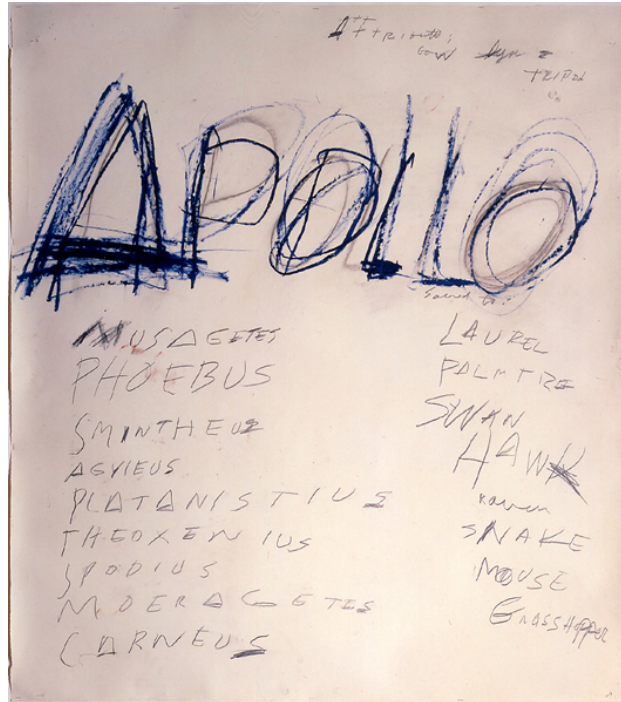 ATTRIBUTES
BOW lyre &
TRIPOD
APOLLO
MUSAGETES
PHOEBUS
SMINTHEUS
AGVIEUS
PLATANISTIUS
THEOXENIUS
SPODIUS
MOERAGETES
CARNEUS
Sacred to:
LAUREL
PALMTREE
SWAN
HAWK
raven
SNAKE
MOUSE
GRASSHOPPER